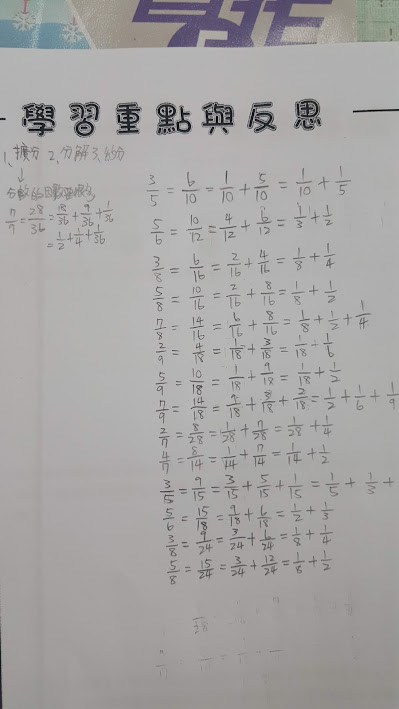 學習重點與反思
1、擴分 2、分解 3、約分
↓
分數的因數要很多
7/9 = 28/36 = 18/36 + 9/36 + 1/36
= 1/2 + 1/4 + 1/36
3/5 = 6/10 = 1/10 + 5/10 = 1/10 + 1/5
5/6 = 10/12 = 4/12 + 6/12 = 1/3 + 1/2
3/8 = 6/16 = 2/16 + 4/16 = 1/8 + 1/4
5/8 = 10/16 = 2/16 + 8/16 = 1/8 + 1/2
7/8 = 14/16 = 6/16 + 8/16 = 1/8 + 1/2 + 1/4
2/9 = 4/18 = 1/18 + 3/18 = 1/18 + 1/6
5/9 = 10/18 = 1/18 + 9/18 = 1/18 + 1/2
7/9 = 14/18 = 9/18 + 3/18 + 2/18 = 1/2 + 1/6 + 1/9
2/7 = 8/28 = 1/28 + 7/28 = 1/28 + 1/4
4/7 = 8/14 = 1/14 + 7/14 = 1/14 + 1/2
3/5 = 9/15 = 3/15 + 5/15 + 1/15 = 1/5 + 1/3 +
5/6 = 15/18 = 9/18 + 6/18 = 1/2 + 1/3
3/8 = 9/24 = 3/24 + 6/24 = 1/8 + 1/4
5/8 = 15/24 = 3/24 + 12/24 = 1/8 + 1/2